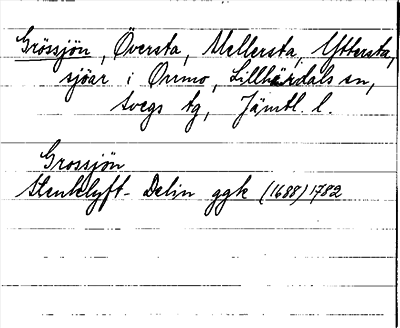 Grössjön, Översta, Mellersta, Yttersta,
sjöar i Orrmo, Lillhärdals sn,
Svegs tg, Jämtl. l.
Grossjön
Stenklyft- Delin ggk (1688) 1782